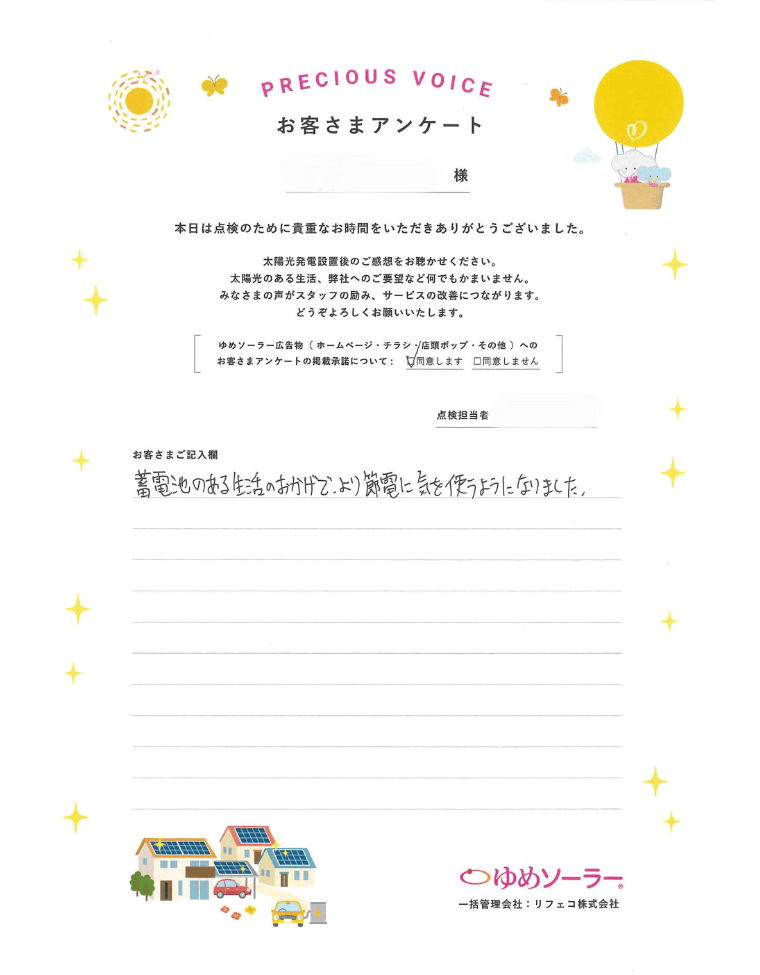 PRECIOUS VOICE
お客さまアンケート
様
本日は点検のために貴重なお時間をいただきありがとうございました。
太陽光発電設置後のご感想をお聴かせください。
太陽光のある生活、弊社へのご要望など何でもかまいません。
みなさまの声がスタッフの励み、サービスの改善につながります。
どうぞよろしくお願いいたします。
ゆめソーラー広告物（ ホームページ・チラシ・店頭ポップ・その他 ）への
お客さまアンケートの掲載承諾について： ☑同意します □同意しません
点検担当者
お客さまご記入欄
蓄電池のある生活のおかげで、より節電に気を使うようになりました。
ゆめソーラー®
一括管理会社：リフェコ株式会社